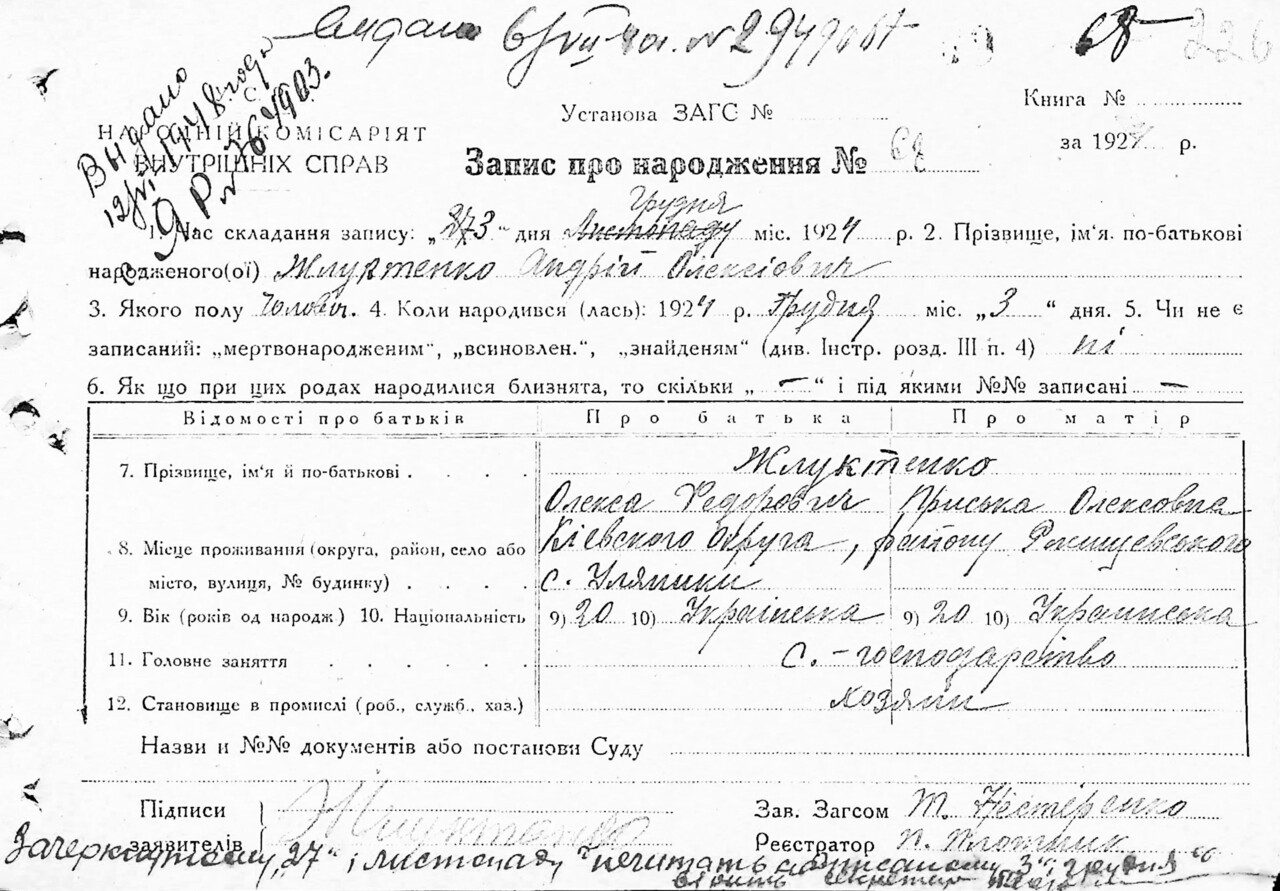 68
Видано
12/VI 1948 года
Книга №
Установа ЗАГС №
НАРОДНІЙ КОМІСАРІЯТ
за 1924 р.
ВНУТРІШНІХ СПРАВ
Запис про народження № 68
Грудня
1. Час складання запису: „ 3 “ дня Листопаду міс. 1924 р. 2. Прізвище, ім'я. по-батькові
народженого(ої) Жлуктенко Андрій Олексіович
3. Якого полу Чоловіч. 4. Коли народився (лась): 1924 р. Грудня міс. „ 3 “ дня. 5. Чи не є
записаний: „мертвонародженим“, „всиновлен.“, „знайденям“ (див. Інстр. розд. III п. 4) ні
6. Як що при цих родах народилися близнята, то скільки „ — “ і під якими №№ записані —
Відомості про батьків Про батька Про матір
7. Прізвище, ім'я й по-батькові . . . . Жлуктенко
Олекса Федорович Приська Олексовна
8. Місце проживання (округа, район, село або Кіевского Округа, району
місто, вулиця, № будинку) . . . . с. Уляники
9. Вік (років од народж) 10. Національність 9) 20 10) Українська 9) 20 10) Украинська
11. Головне заняття . . . . . с.-господарство
12. Становище в промислі (роб., служб., хаз.) хозяин
Назви и №№ документів або постанови Суду
Підписи Зав. Загсом Нестеренко
заявителів Жлуктенко Реєстратор П. Плотник
Зачеркнутому „27“ і листопаду